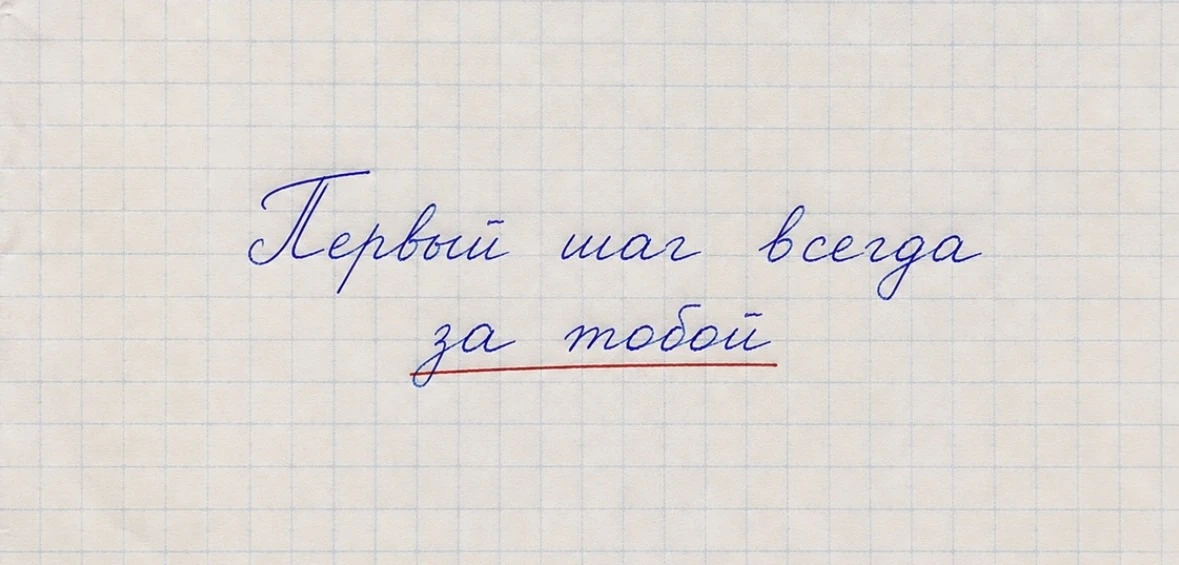 Первый шаг всегда
за тобой